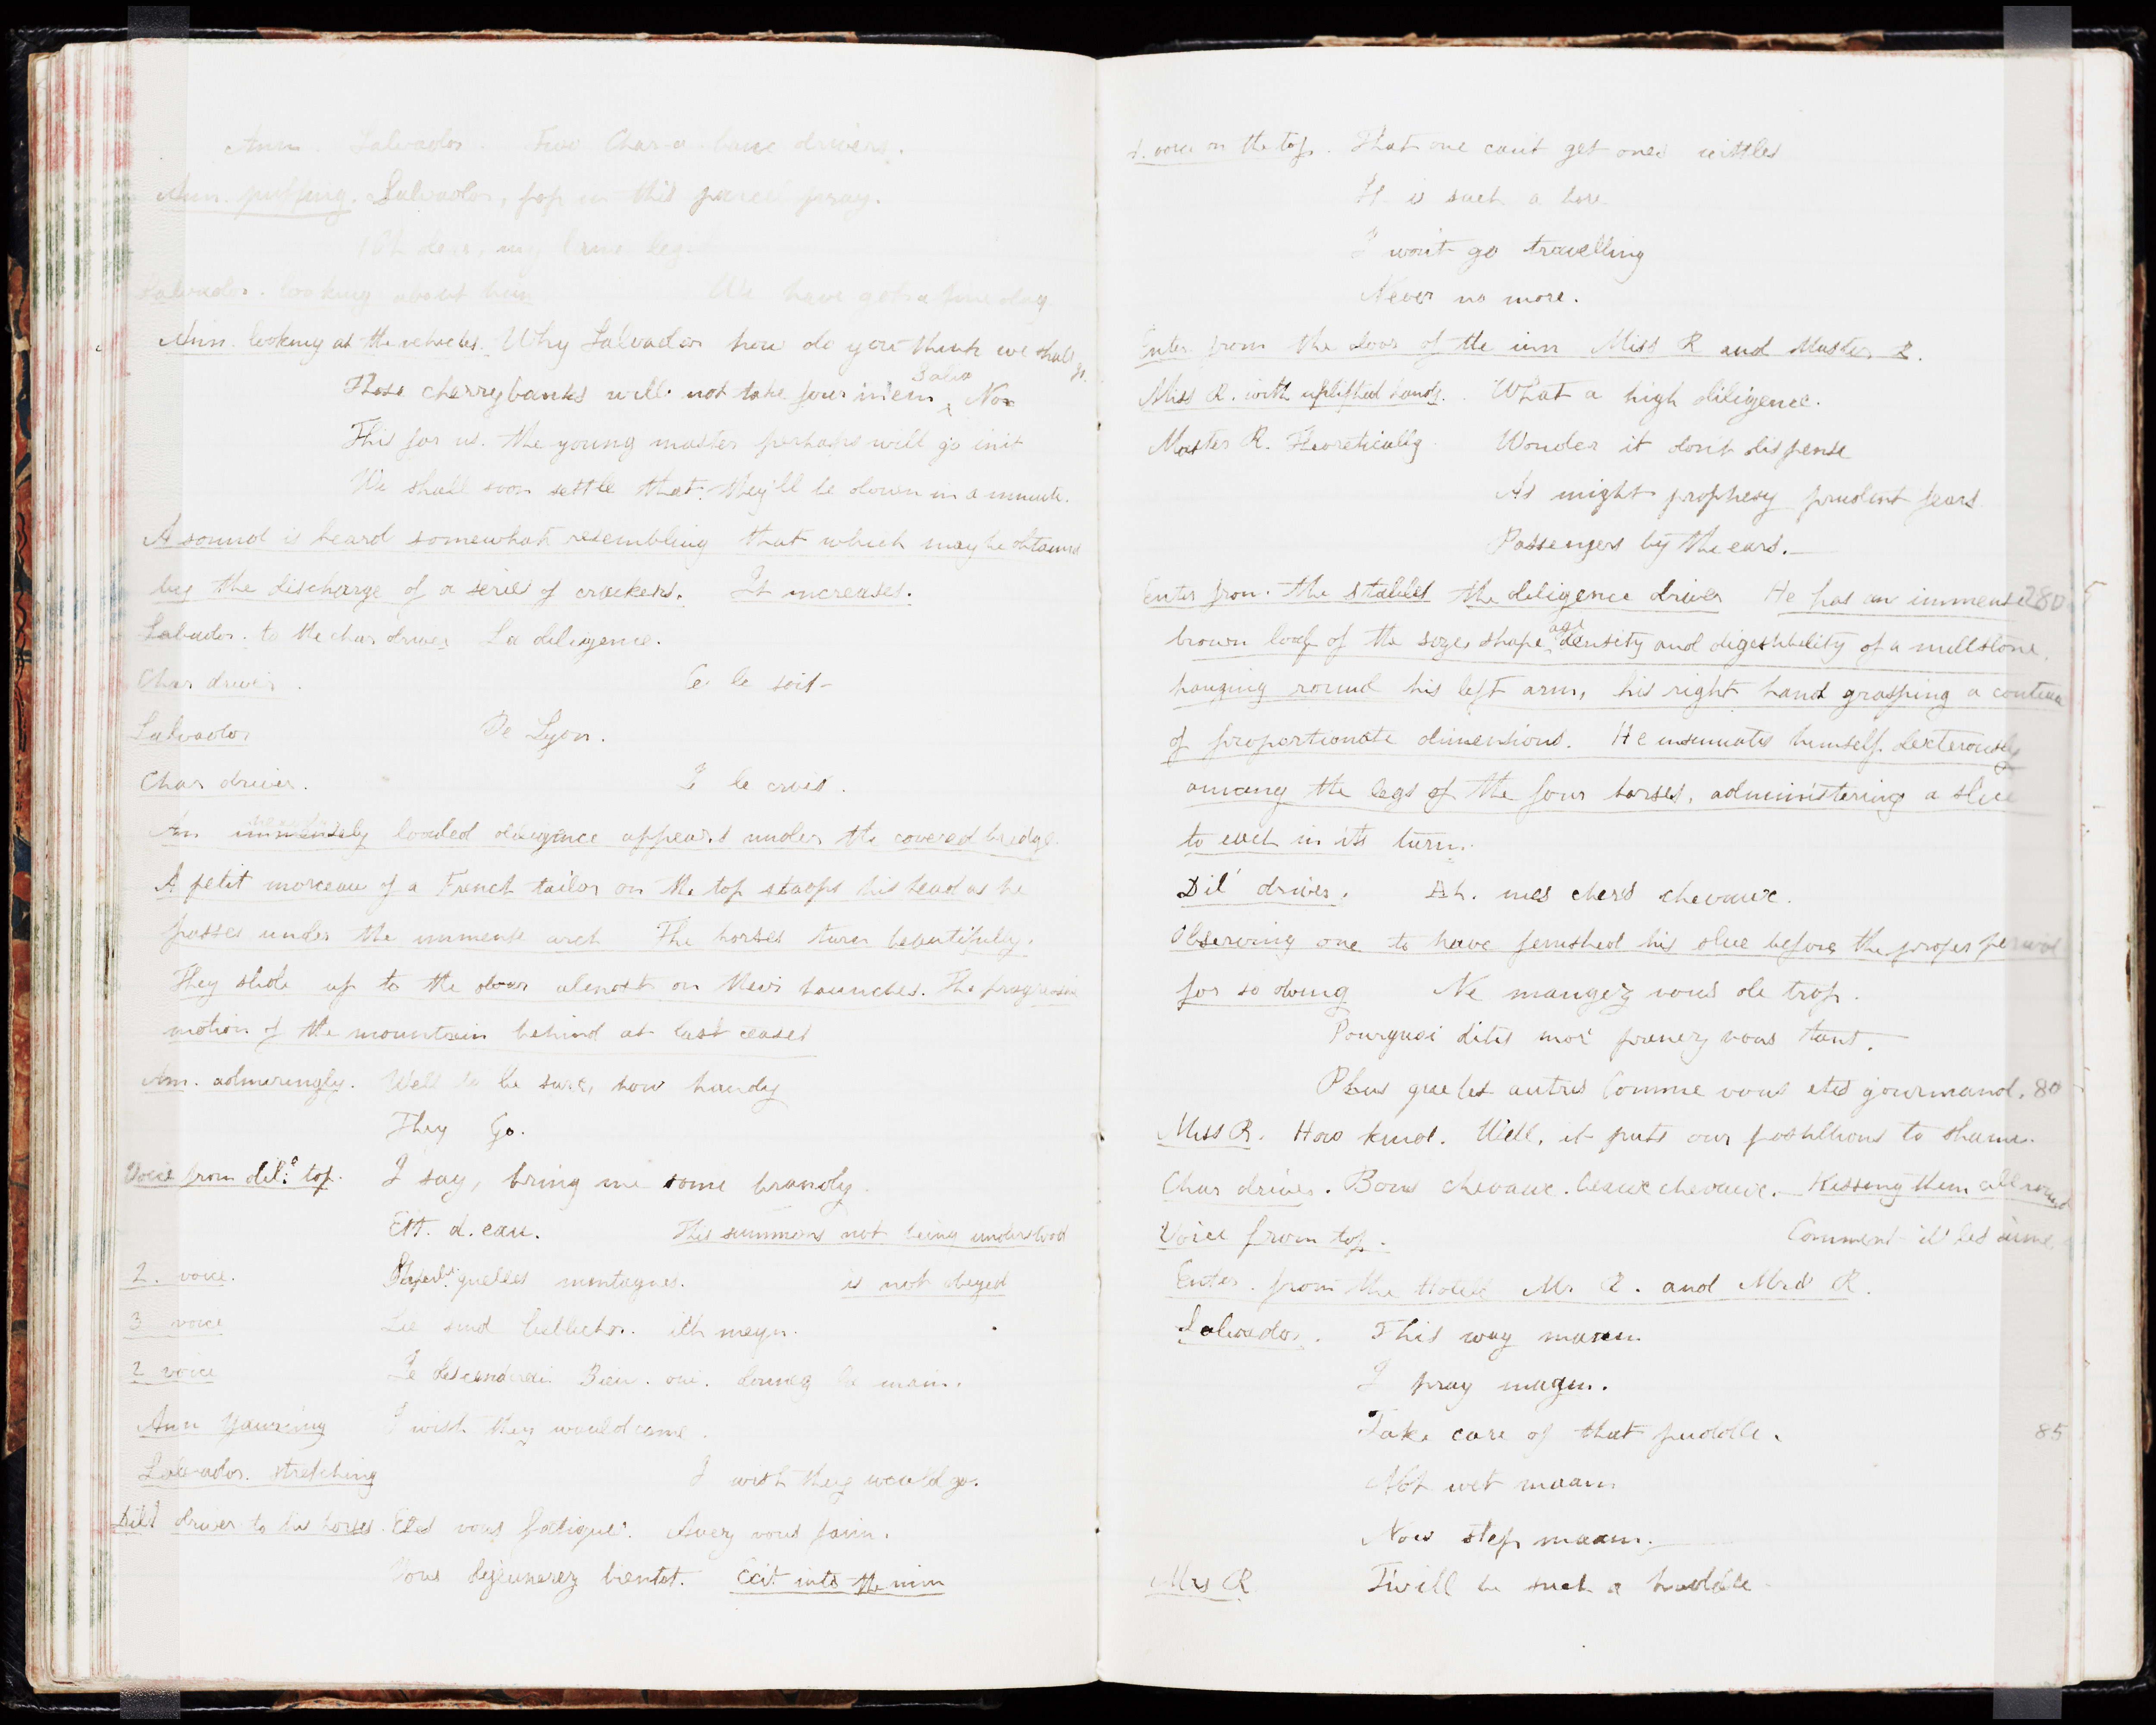 Ann. Salvador. Two Char-a-banc drivers.
Ann. puffing. Salvador, pop in this parcel pray.
Oh dear, my lame leg.
Salvador. looking about him We have got a fine day
Ann. looking at the vehicles. Why Salvador how do you think we shall go.
Those cherrybanks will not take four in em Salva No
This for us. the young master perhaps will go init
We shall soon settle that. they'll be down in a minute.
A sound is heard somewhat resembling that which may be obtained
by the discharge of a series of crackers. It increases.
Salvador. to the char driver La diligence.
Char driver. Ce le soit
Salvador De Lyon.
Char driver. Je le crois.
An immensely loaded diligence appears under the covered bridge.
A petit morceau of a French tailor on the top stoops his head as he
passes under the immense arch The horses turn beautifully.
They slide up to the door almost on their haunches. The progressive
motion of the mountain behind at last ceases
Ann. admiringly. Well to be sure, how handy
They Go.
Voice from dil:e top. I say, bring me some brandy.
Ett. d. eau. This summons not being understood
2. voice. quelles montagnes. is not obeyed
3 voice Sie sind ich
2 voice Je descendrai Bien. oui. donnez la main.
Ann yawning I wish they would come.
Salvador. stretching I wish they would go.
Dil: driver to his horses. Etes vous fatigué. Avez vous faim.
Vous dejeunerez bientot. Exit into the inn
voice on the top. That one can't get ones vittles
It is such a bore
I won't go travelling
Never no more.
Enter from the door of the inn Miss R and Master R.
Miss R. with uplifted hands. What a high diligence.
Master R. Theoretically Wonder it don't dispense
As might prophesy prudent fears
Passengers by the ears.
Enter from the stables the diligence driver He has an immense 280
brown loaf of the size, shape age density and digestibility of a millstone.
hanging round his left arm, his right hand grasping a couteau
of proportionate dimensions. He insinuates himself dexterously
among the legs of the four horses, administering a slice
to each in its turn.
Dil' driver. Ah. mes chers chevaux.
Observing one to have finished his slice before the proper period
for so doing Ne mangez vous de trop.
Pourquoi dites moi prenez vous tant.
Plus que les autres Comme vous etes gourmand. 80
Miss R. How kind. Well, it puts our postillions to shame.
Char driver. Bons chevaux. beaux chevaux. Kissing them all round
Voice from top. Comment il les aime
Enter from the Hotel Mr R. and Mrs R.
Salvador. This way maam
I pray maam.
Take care of that puddle. 85
Not wet maam
Now step maam.
Mrs R Twill be such a huddle